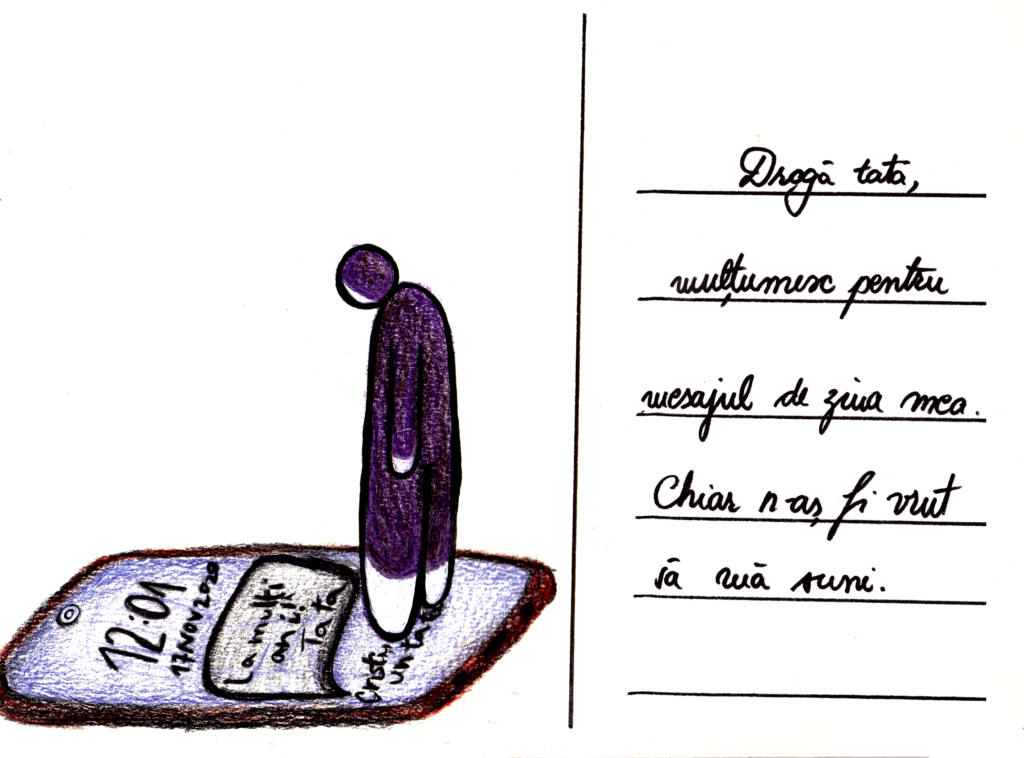 12:01
17 NOV 2020
La mulți
anii!
Tata
Cristi,
un tată
Dragă tată,
mulțumesc pentru
mesajul de ziua mea.
Chiar n-aș fi vrut
să mă suni.